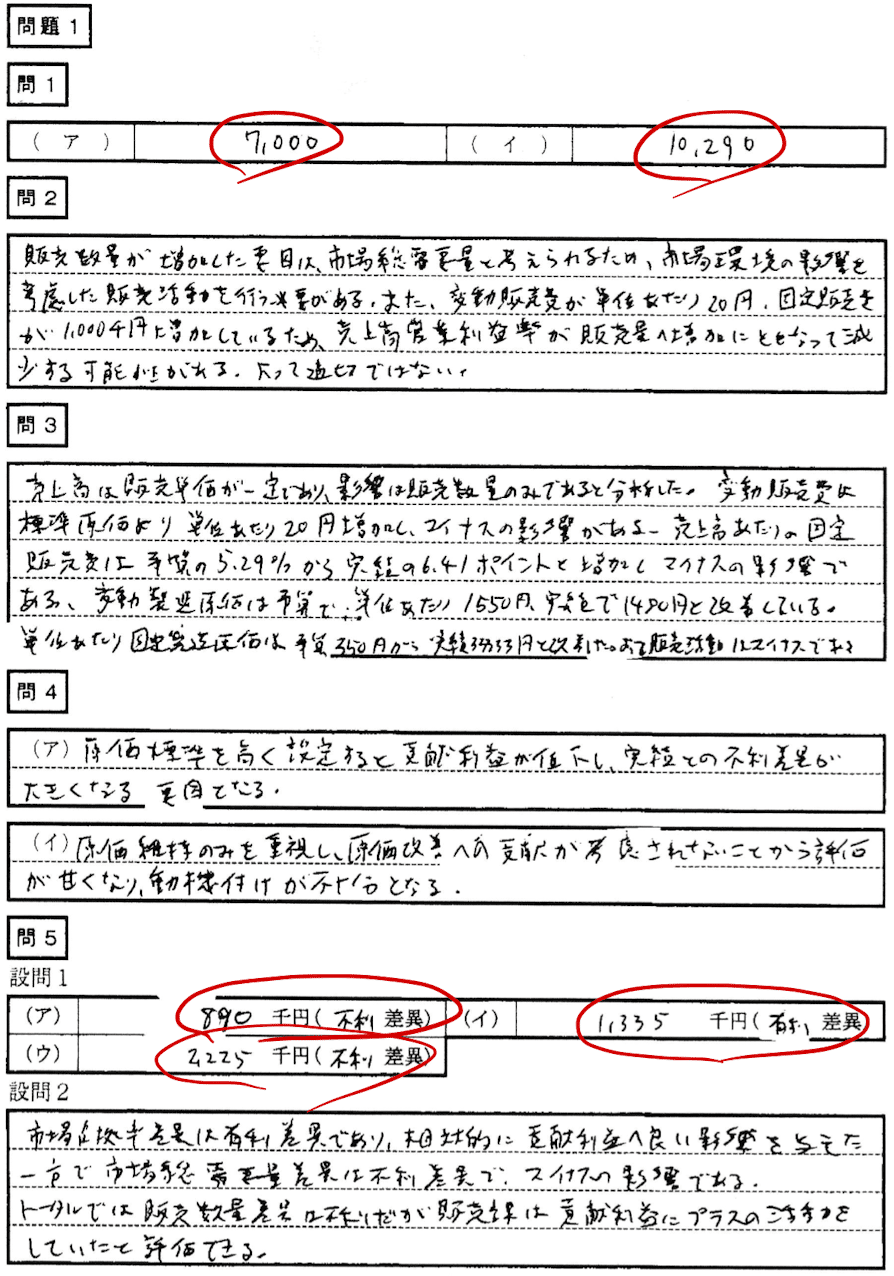 問題1
問1
(ア) 7,000 (イ) 10,290
問2
販売数量が増加した要因は、市場総需要量と考えられるため、市場環境の影響を
考慮した販売活動を行う必要がある。また、変動販売費が単位あたり20円、固定販売費
が1,000千円増加しているため、売上高営業利益率が販売量の増加にともなって減
少する可能性がある。よって適切ではない。
問3
売上高は販売単価が一定であり、影響は販売数量のみであると分析した。変動販売費は
標準原価より単位あたり20円増加し、マイナスの影響がある。売上高あたりの固定
販売費は予算の5.29%から実績の6.41ポイントと増加しマイナスの影響で
ある。変動製造原価は予算で単位あたり1550円、実績で1480円と改善している。
単位あたり固定製造原価は予算350円から実績333円と改善した。よって販売活動はマイナスである
問4
(ア) 原価標準を高く設定すると貢献利益が低下し、実績との不利差異が
大きくなる要因となる。
(イ) 原価維持のみを重視し、原価改善への貢献が考慮されないことから評価
が甘くなり、動機付けが不十分となる。
問5
設問1
(ア) 890 千円(不利差異) (イ) 1,335 千円(有利差異
(ウ) 2,225 千円(不利差異)
設問2
市場占拠率差異は有利差異であり、相対的に貢献利益へ良い影響を与えた
一方で市場総需要量差異は不利差異で、マイナスの影響である。
トータルでは販売数量差異は不利だが販売課は貢献利益にプラスの活動を
していたと評価できる。